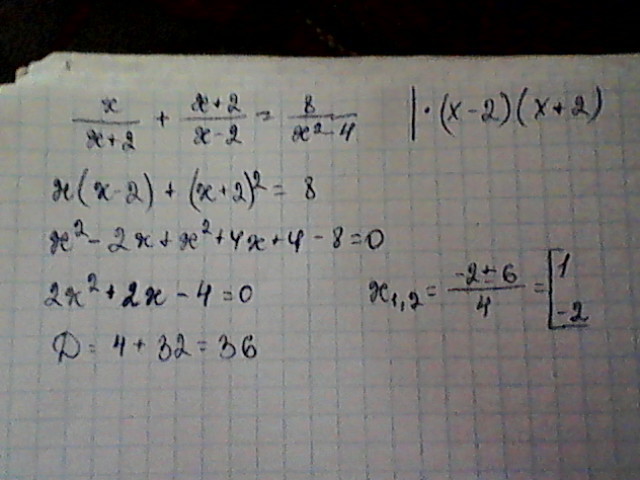 x/(x+2) + (x+2)/(x-2) = 8/(x²-4) |·(x-2)(x+2)
x(x-2) + (x+2)² = 8
x² - 2x + x² + 4x + 4 - 8 = 0
2x² + 2x - 4 = 0
D = 4 + 32 = 36
x₁,₂ = (-2±6)/4 = [1
-2